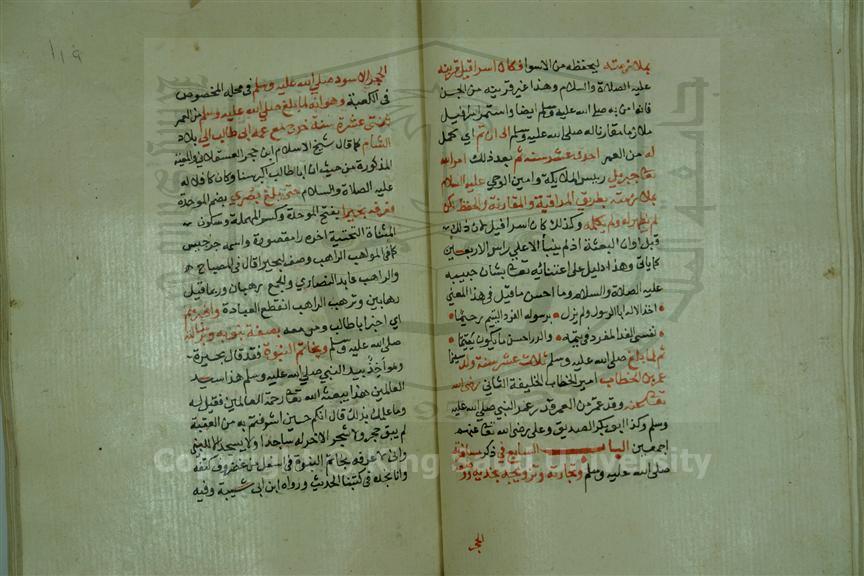 بملازمته ليحفظه من الاسوا فكان اسرافيل قرينه
عليه الصلاة والسلام وهذا غير قرينه من الجن
فانه امن به صلى الله عليه وسلم ايضا واستمر اسرافيل
ملازما مقارنا له صلى الله عليه وسلم الى ان تم اي كمل
له من العمر احدى عشر سنة ثم بعد ذلك امر الله
تعالى جبريل رييس الملايكة وامين الوحي عليه السلام
بملازمته بطريق المراقبة والمقارنة والحفظ لكن
لم يظهر له ولم يكلمه وكذلك كان اسرافيل
قبل اوان البعثة اذ لم ينبأ الا على راس الاربعين
كما ياتي وهذا دليل على اعتنائه تعالى بشان حبيبه
عليه الصلاة والسلام وما احسن ما قيل في هذا المعنى
اخذ الاله ابا الرسول ولم يزل برسوله الفرد اليتيم رحيما
نفسي الفدا لمفرد في يتمه والدر احسن ما يكون يتيما
ثم لما بلغ صلى الله عليه وسلم ثلاث عشر سنة ولد سيدنا
عمر بن الخطاب امير الخطاب الخليفة الثاني رضي الله
تعالى عنه وقد عمر من العمر قدر عمر النبي صلى الله عليه
وسلم وكذا ابو بكر الصديق وعلي رضي الله تعالى عنهم
اجمعين الباب السابع في ذكر سفره
صلى الله عليه وسلم وتجارته وتزويجه بخديجة
الحجر
١١٩
الحجر الاسود صلى الله عليه وسلم في محله المخصوص
في الكعبة وهو انه لما بلغ صلى الله عليه وسلم من العمر
ثلاث عشرة سنة خرج مع عمه ابي طالب الى بلاد
الشام كما قال شيخ الاسلام ابن حجر العسقلاني
المذكورة من حيث ان ابا طالب اكبر سنا وكان كافلا له
عليه الصلاة والسلام حتى بلغ بصرى بضم الموحدة
فعرفه بحيرا بفتح الموحدة وكسر المهملة وسكون
المثناة التحتية اخره را مقصورة واسمه جرجيس
كما في المواهب الراهب وصف لبحيرا قال في المصباح
والراهب عابد النصارى والجمع رهبان وربما قيل
رهابين وترهب الراهب انقطع للعبادة واخبرهم
اي اخبر ابا طالب ومن معه بصفة نبوته ورسالته
صلى الله عليه وسلم وبخاتم النبوة فقد قال بحيرة
وهو اخذ بيد النبي صلى الله عليه وسلم هذا سيد
العالمين هذا يبعثه الله تعالى رحمة للعالمين فقيل له
وما علمك بذلك قال انكم حين اشرفتم به من العقبة
لم يبق حجر ولا شجر الا خر له ساجدا ولا يسجد الا لنبي
واني لاعرفه بخاتم النبوة في اسفل من غضروف كتفه
وانا نجده في كتبنا الحديث ورواه ابن ابي شيبة وفيه
Copyright © King Saud University